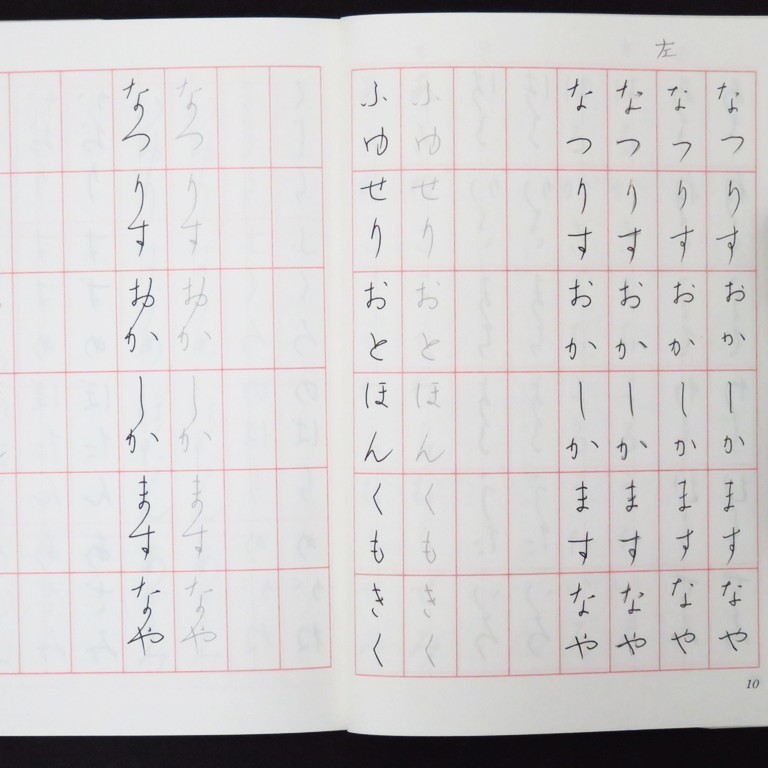 左
なつ りす おか しか ます なや
なつ りす おか しか ます なや
なつ りす おか しか ます なや
なつ りす おか しか ます なや
ふゆ せり おと ほん くも きく
ふゆ せり おと ほん くも きく
10
なつ りす おか しか ます なや
なつ りす おか しか ます なや